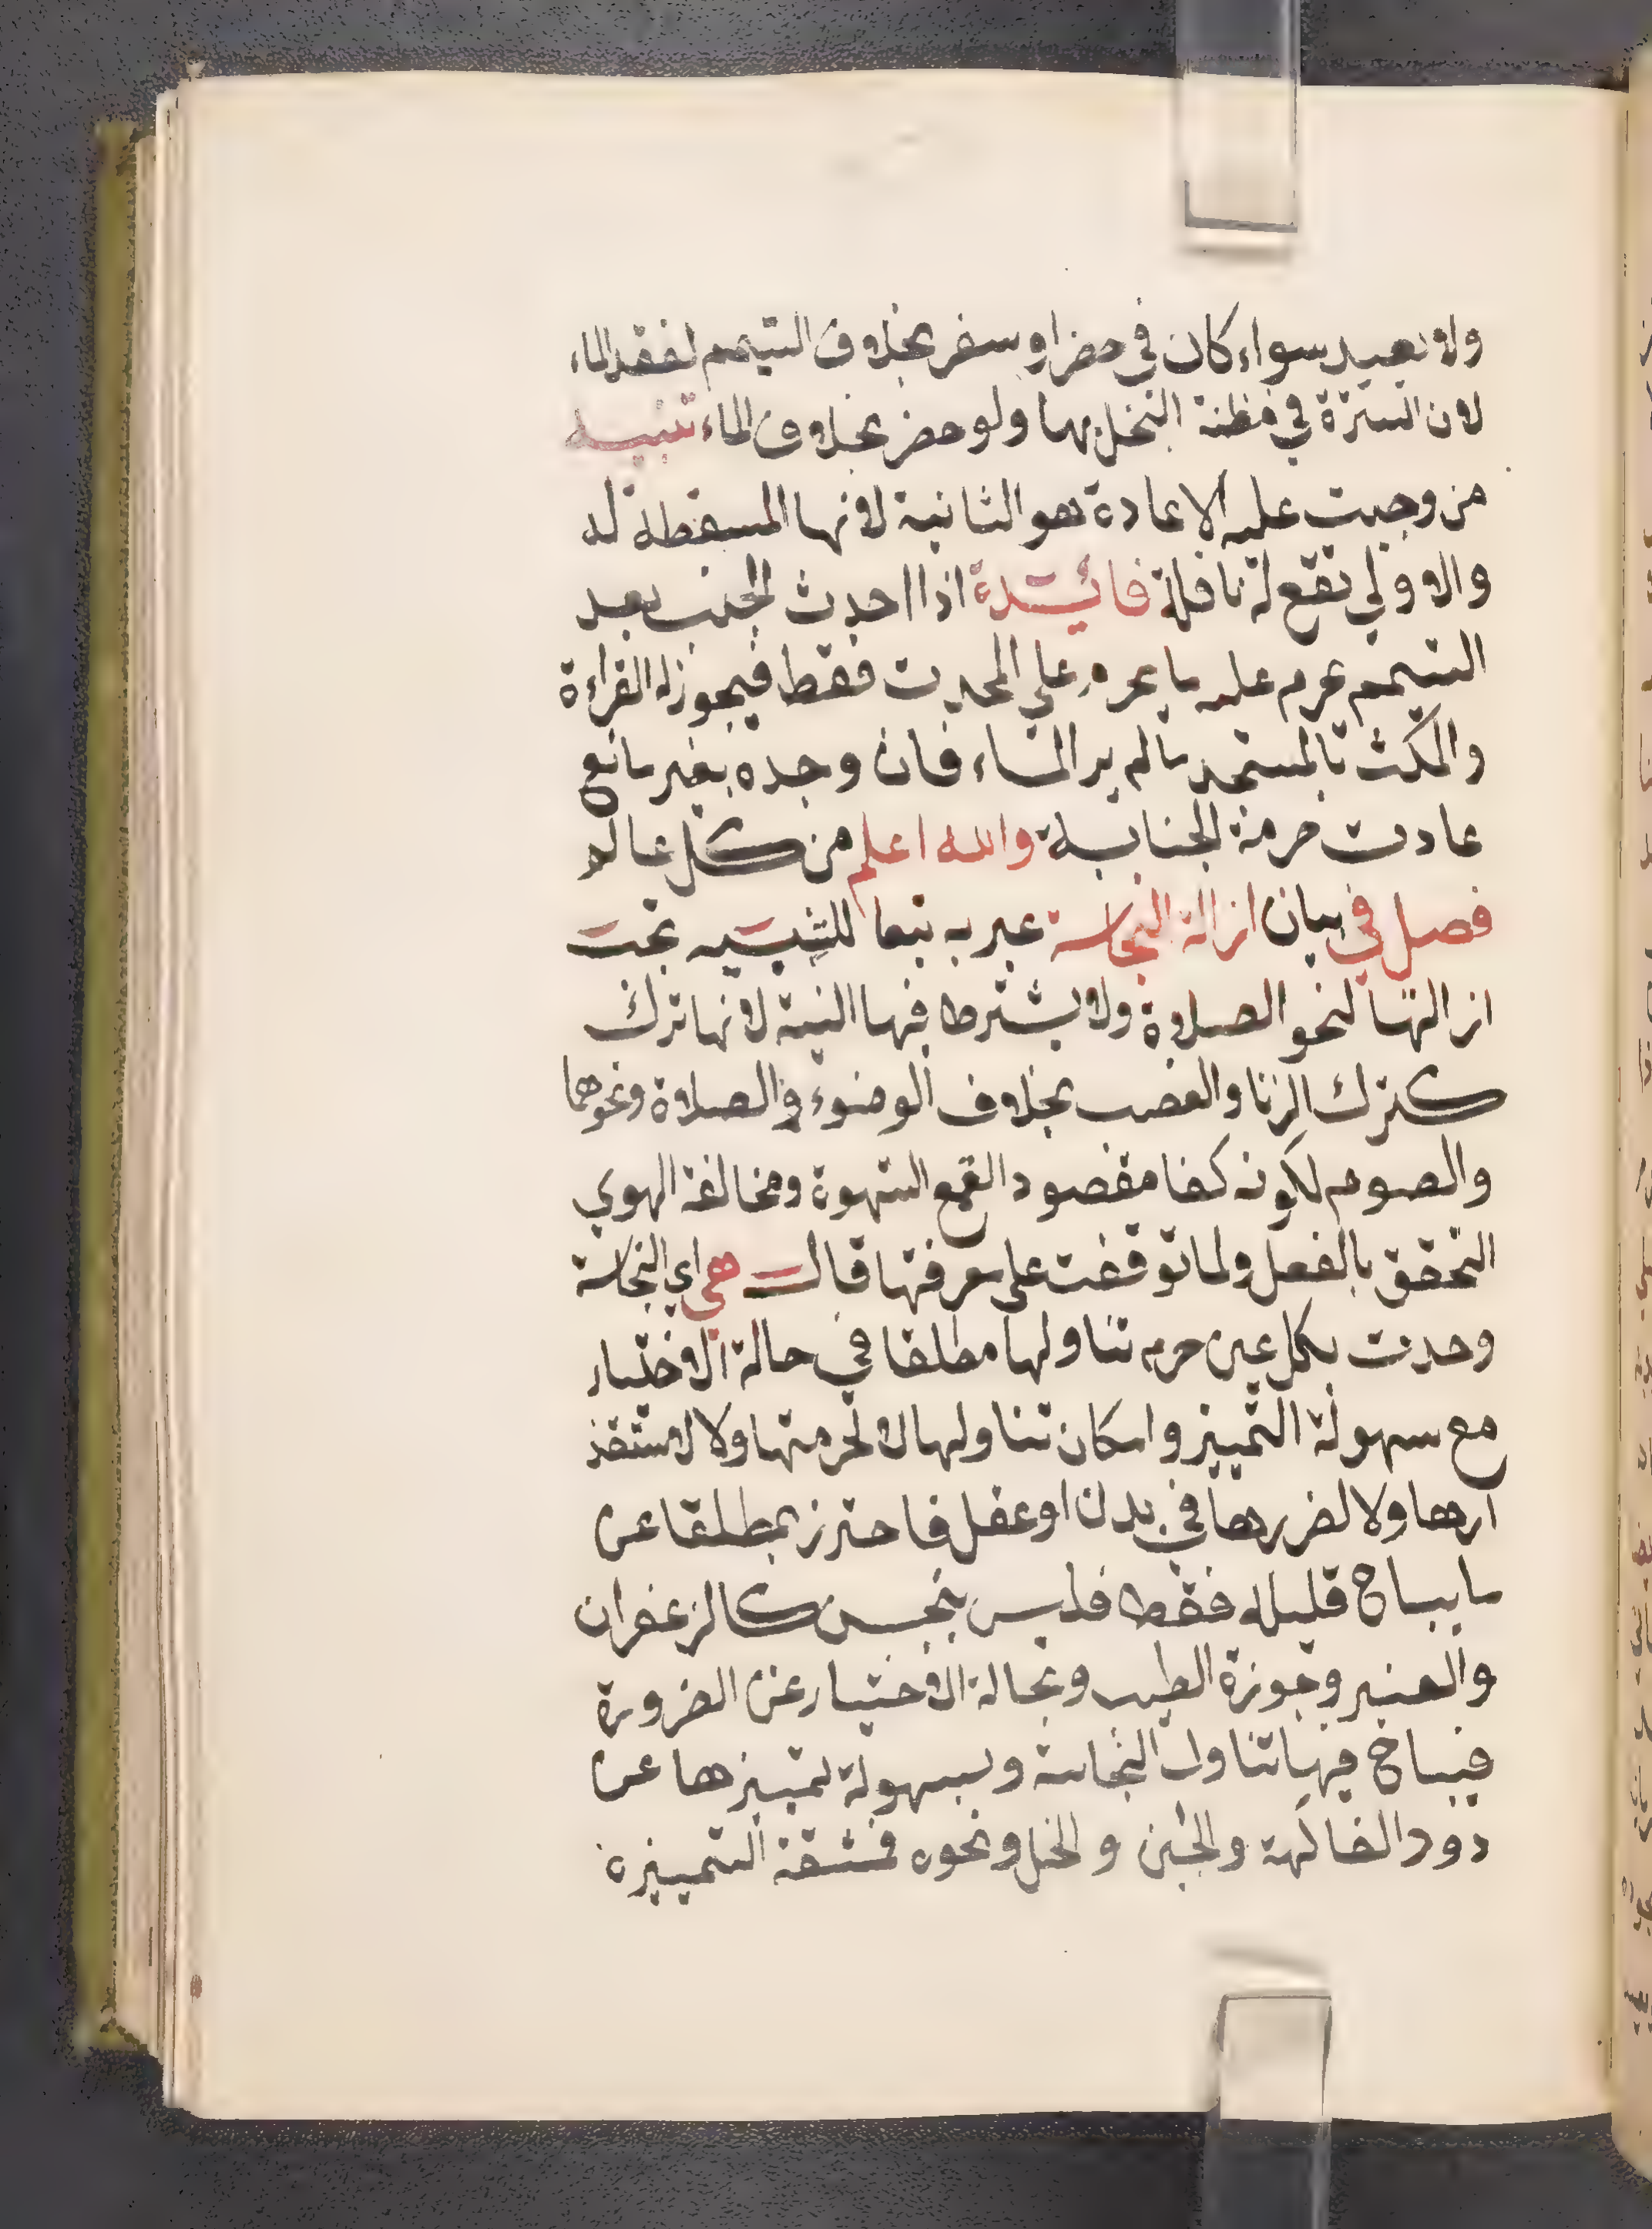 ولا يعيد سواء كان في حضر او سفر بخلاف التيمم لفقد الماء
لان السترة في مظنة البخل بها ولو حضر بخلاف الماء تنبيه
من وجبت عليه الاعادة هو الثانية لانها المسقطة له
والاولي تقع له نافلة فائدة اذا احدث الجنب بعد
التيمم حرم عليه ما يحرم علي المحدث فقط فيجوز له القراءة
والمكث بالمسجد ما لم ير الماء فان وجده بغير مانع
عادت حرمة الجنابة والله اعلم من كل عالم
فصل في بيان ازالة النجاسة عبر به تبعا للتنبيه تجب
ازالتها لنحو الصلاة ولا يشترط فيها النية لانها ترك
كترك الزنا والغصب بخلاف الوضوء والصلاة ونحوهما
والصوم لكونه كفا مقصودا لقمع الشهوة ومخالفة الهوي
التحقق بالفعل ولما توقفت علي معرفتها قال هي اي النجاسة
وحدت بكل عين حرم تناولها مطلقا في حالة الاختيار
مع سهولة التمييز وامكان تناولها لا لحرمتها ولا لاستقذ
ارها ولا لضررها في بدن او عقل فاحترز بمطلقا عن
ما يباح قليله فقط فليس بنجس كالزعفران
والعنبر وجوزة الطيب وبحالة الاختيار عن الضرورة
فيباح فيها تناول النجاسة وبسهولة تمييزها عن
دود الفاكهة والجبن والخل ونحوه فمشقة التمييزه